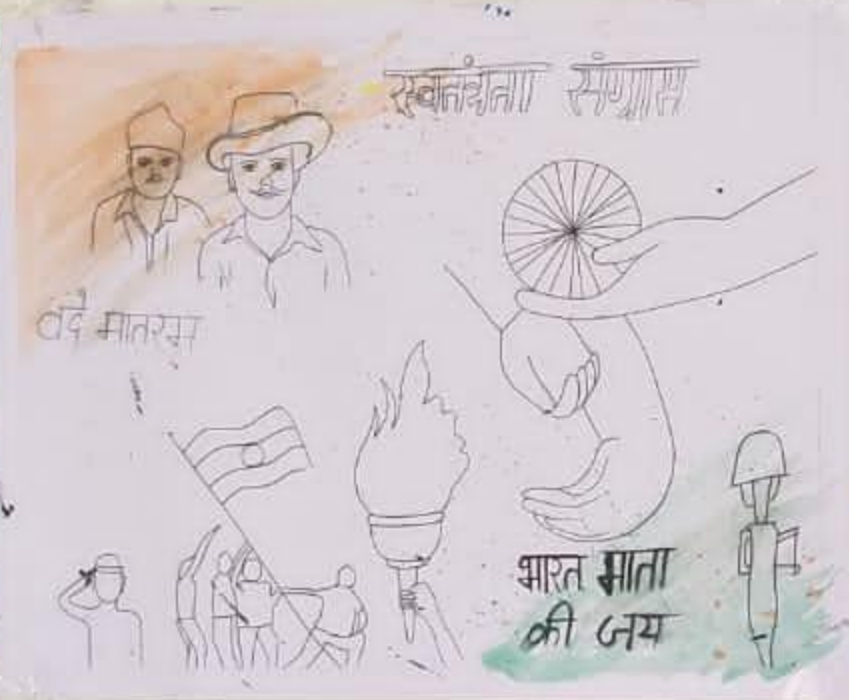 स्वतंत्रता संग्राम
वंदे मातरम
भारत माता
की जय